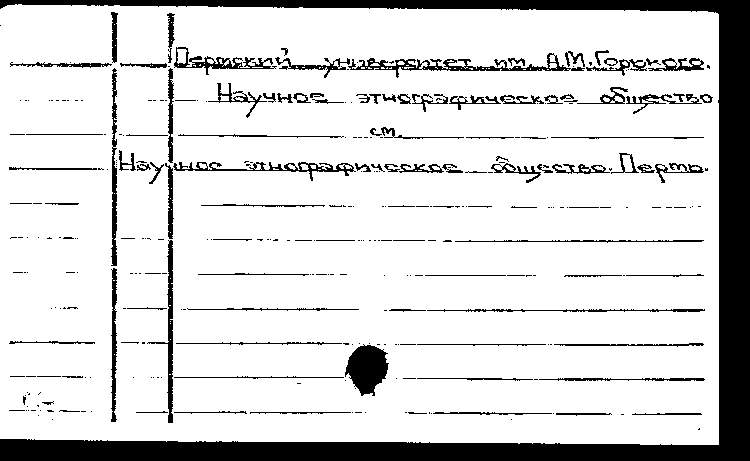 Пермский университет им. А.М.Горького.
Научное этнографическое общество
см.
Научное этнографическое общество. Пермь.